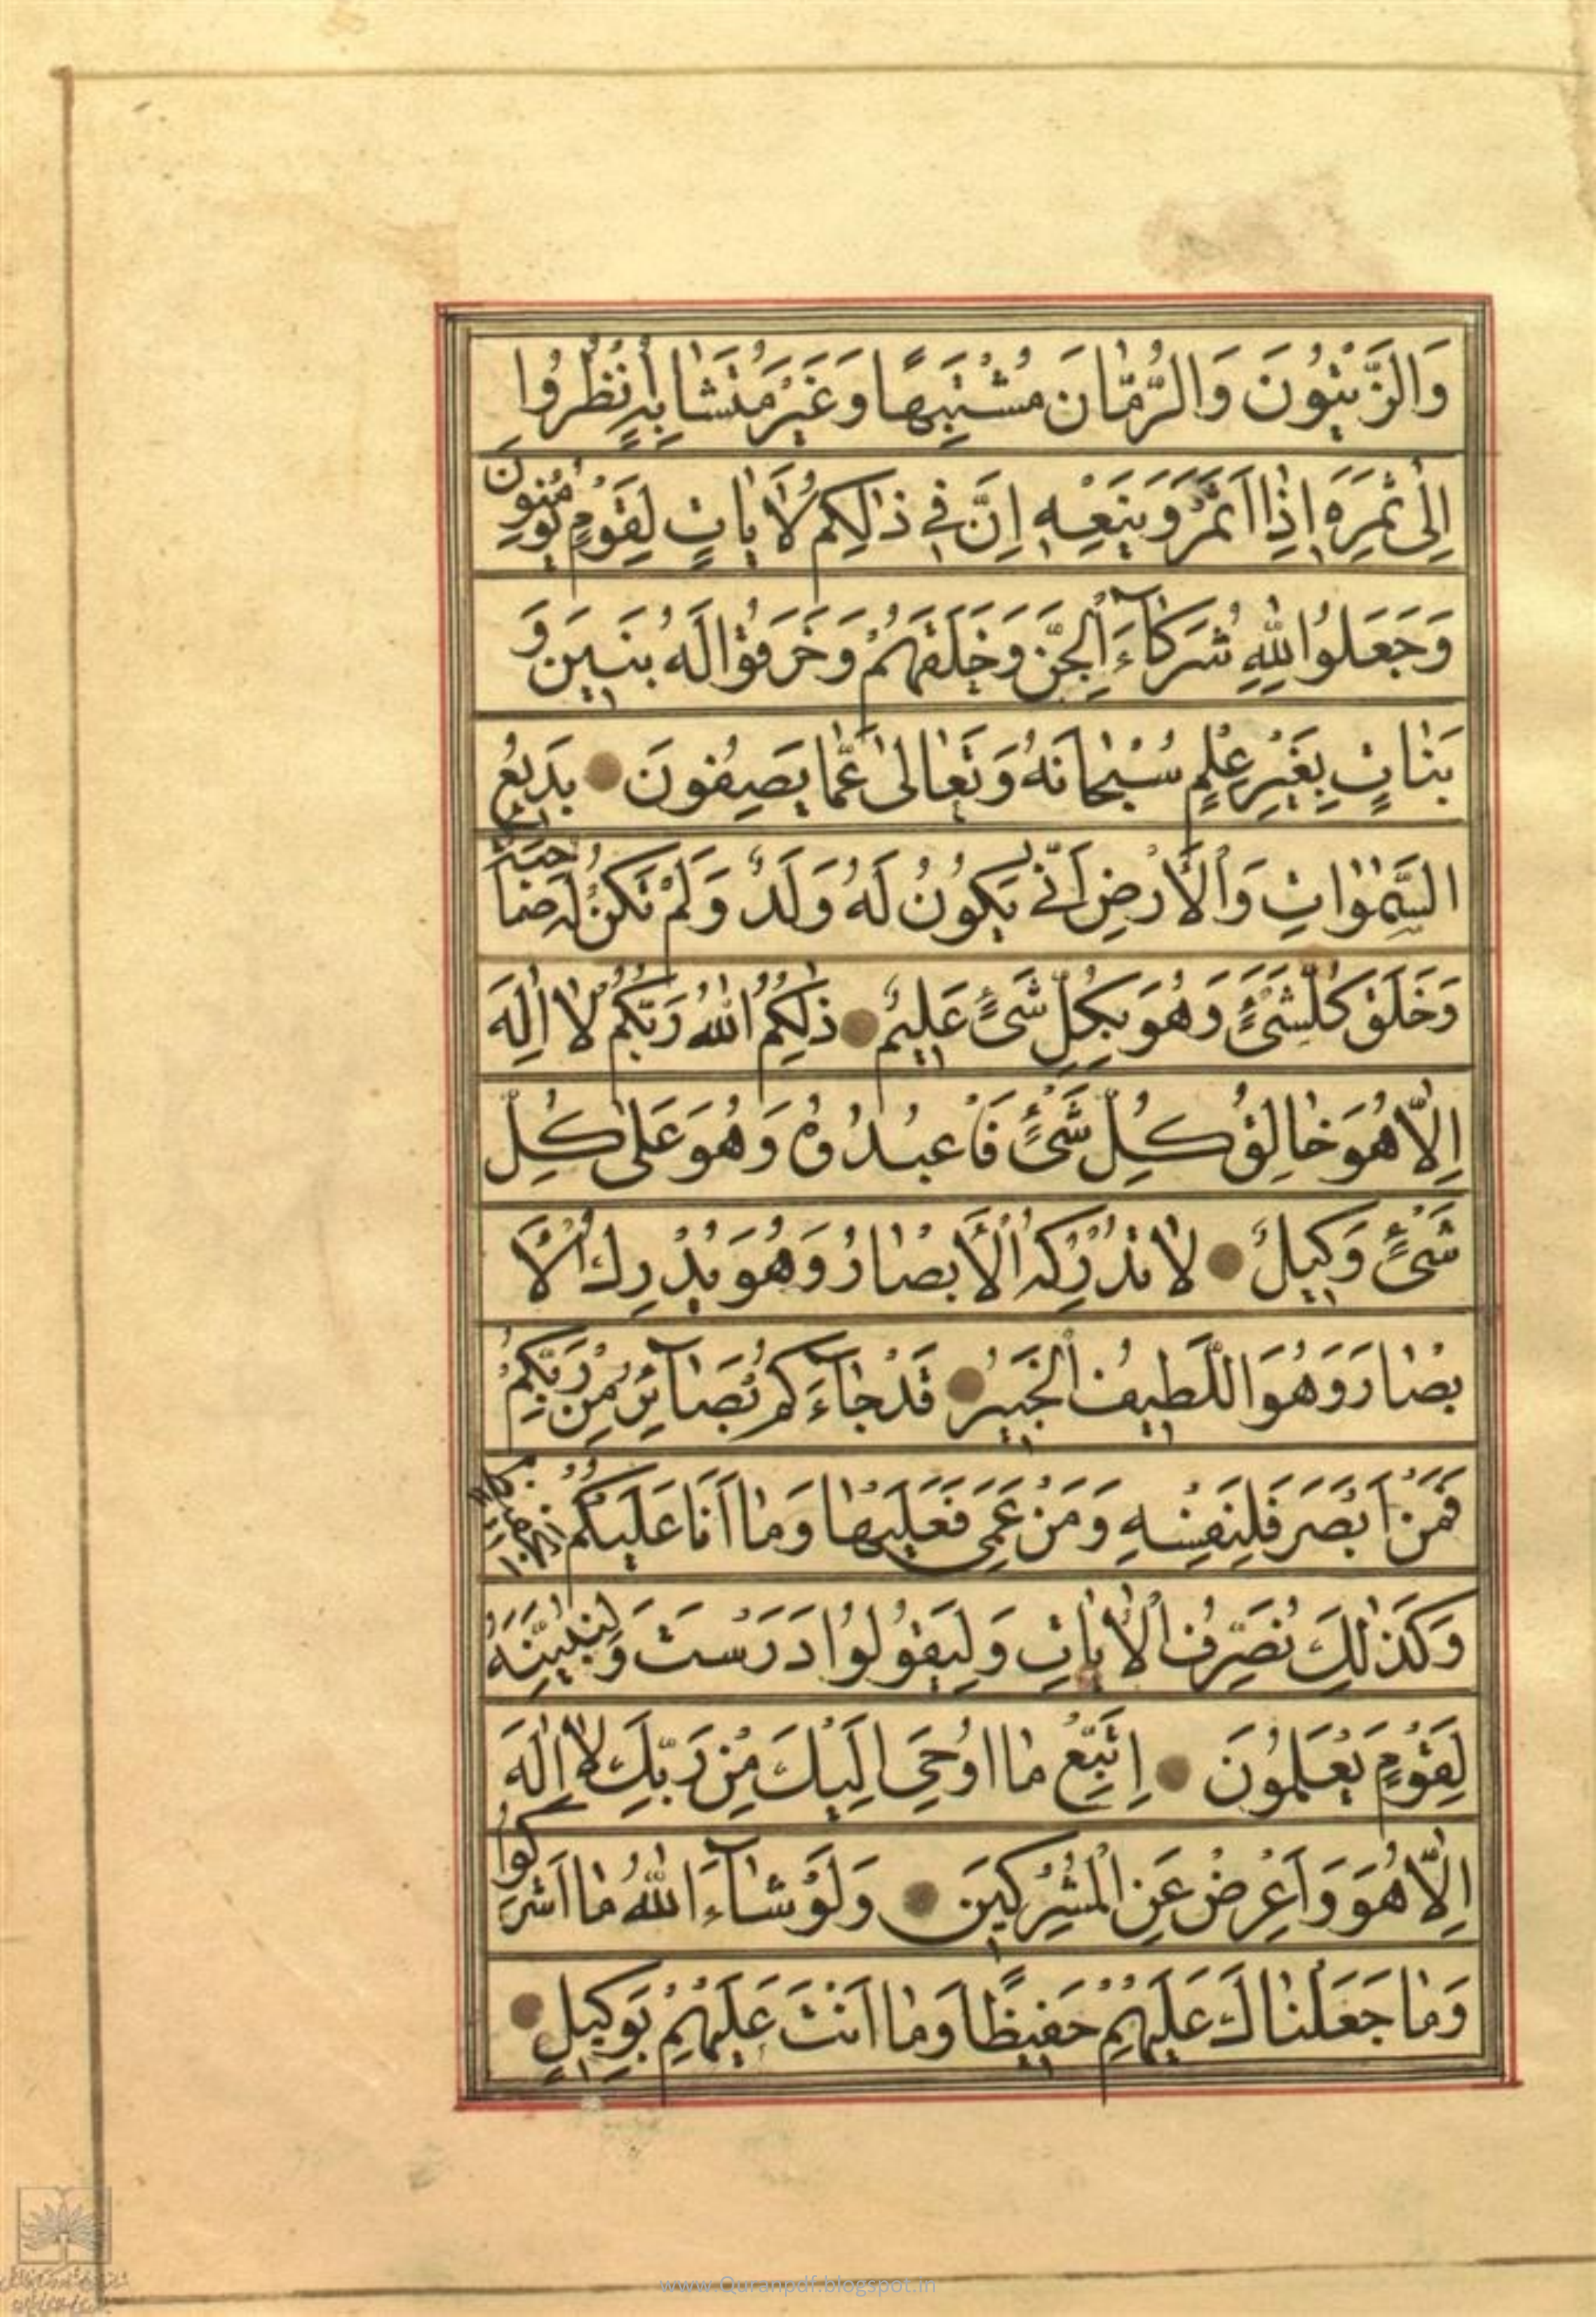 وَالزَّيْتُونَ وَالرُّمّٰانَ مُشْتَبِهًا وَغَيْرَ مُتَشٰابِهٍ اُنْظُرُوا
اِلىٰ ثَمَرِهِ اِذٰا اَثْمَرَ وَيَنْعِهِ اِنَّ فِي ذٰلِكُمْ لَاٰيٰاتٍ لِقَوْمٍ يُؤْمِنُونَ
وَجَعَلُوا لِلّٰهِ شُرَكٰاۤءَ الْجِنَّ وَخَلَقَهُمْ وَخَرَقُوا لَهُ بَنِينَ وَ
بَنٰاتٍ بِغَيْرِ عِلْمٍ سُبْحٰانَهُ وَتَعٰالىٰ عَمّٰا يَصِفُونَ بَدِيعُ
السَّمٰوٰاتِ وَالْاَرْضِ اَنّٰى يَكُونُ لَهُ وَلَدٌ وَلَمْ تَكُنْ لَهُ صٰاحِبَةٌ
وَخَلَقَ كُلَّ شَيْءٍ وَهُوَ بِكُلِّ شَيْءٍ عَلِيمٌ ذٰلِكُمُ اللّٰهُ رَبُّكُمْ لٰا اِلٰهَ
اِلّٰا هُوَ خٰالِقُ كُلِّ شَيْءٍ فَاعْبُدُوهُ وَهُوَ عَلىٰ كُلِّ
شَيْءٍ وَكِيلٌ لٰا تُدْرِكُهُ الْاَبْصٰارُ وَهُوَ يُدْرِكُ الْاَ
بْصٰارَ وَهُوَ اللَّطِيفُ الْخَبِيرُ قَدْ جٰاۤءَكُمْ بَصٰاۤئِرُ مِنْ رَبِّكُمْ
فَمَنْ اَبْصَرَ فَلِنَفْسِهِ وَمَنْ عَمِيَ فَعَلَيْهٰا وَمٰا اَنَا عَلَيْكُمْ بِحَفِيظٍ
وَكَذٰلِكَ نُصَرِّفُ الْاٰيٰاتِ وَلِيَقُولُوا دَرَسْتَ وَلِنُبَيِّنَهُ
لِقَوْمٍ يَعْلَمُونَ اِتَّبِعْ مٰا اُوحِيَ اِلَيْكَ مِنْ رَبِّكَ لٰا اِلٰهَ
اِلّٰا هُوَ وَاَعْرِضْ عَنِ الْمُشْرِكِينَ وَلَوْ شٰاۤءَ اللّٰهُ مٰا اَشْرَكُوا
وَمٰا جَعَلْنٰاكَ عَلَيْهِمْ حَفِيظًا وَمٰا اَنْتَ عَلَيْهِمْ بِوَكِيلٍ
www.Quranpdf.blogspot.in